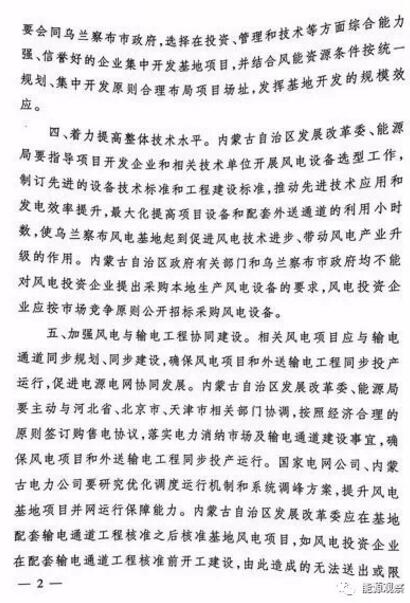 要会同乌兰察布市政府，选择在投资、管理和技术等方面综合能力
强、信誉好的企业集中开发基地项目，并结合风能资源条件按统一
规划、集中开发原则合理布局项目场址，发挥基地开发的规模效
应。
四、着力提高整体技术水平。内蒙古自治区发展改革委、能源
局要指导项目开发企业和相关技术单位开展风电设备选型工作，
制订先进的设备技术标准和工程建设标准，推动先进技术应用和
发电效率提升，最大化提高项目设备和配套外送通道的利用小时
数，使乌兰察布风电基地起到促进风电技术进步、带动风电产业升
级的作用。内蒙古自治区政府有关部门和乌兰察布市政府均不能
对风电投资企业提出采购本地生产风电设备的要求，风电投资企
业应按市场竞争原则公开招标采购风电设备。
五、加强风电与输电工程协同建设。相关风电项目应与输电
通道同步规划、同步建设，确保风电项目和外送输电工程同步投产
运行，促进电源电网协同发展。内蒙古自治区发展改革委、能源局
要主动与河北省、北京市、天津市相关部门协调，按照经济合理的
原则签订购售电协议，落实电力消纳市场及输电通道建设事宜，确
保风电项目和外送输电工程同步投产运行。国家电网公司、内蒙
古电力公司要研究优化调度运行机制和系统调峰方案，提升风电
基地项目并网运行保障能力。内蒙古自治区发展改革委应在基地
配套输电通道工程核准之后核准基地风电项目，如风电投资企业
在配套输电通道工程核准前开工建设，由此造成的无法送出或限
— 2 —
能源观察